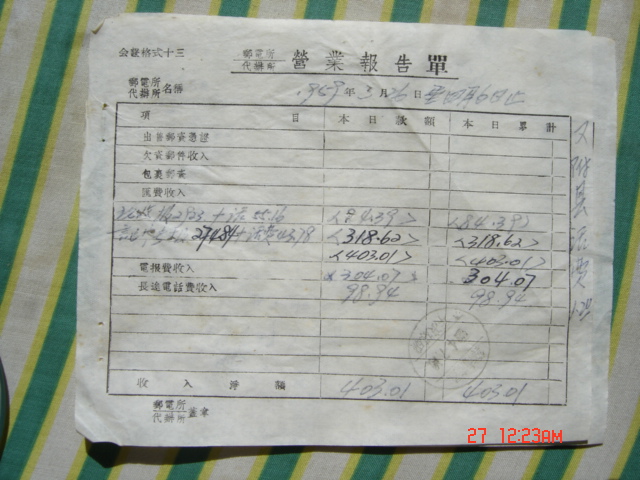 會證格式十三
郵電所
代辦所 營業報告單
郵電所
代辦所 名稱
1959年3月26日至4月6日止
項 目 本日款額 本日累計
出售郵資憑證
欠資郵件收入
包裹郵資
匯費收入
2923 + 話 55.16 <84.39> <84.39>
274.84 + 話費 43.78 <318.62> <318.62>
<403.01> <403.01>
電报費收入 304.07 304.07
長途電話費收入 98.94 98.94
收入淨額 403.01 403.01
郵電所
代辦所 蓋章
另附長話費
27 12:23AM